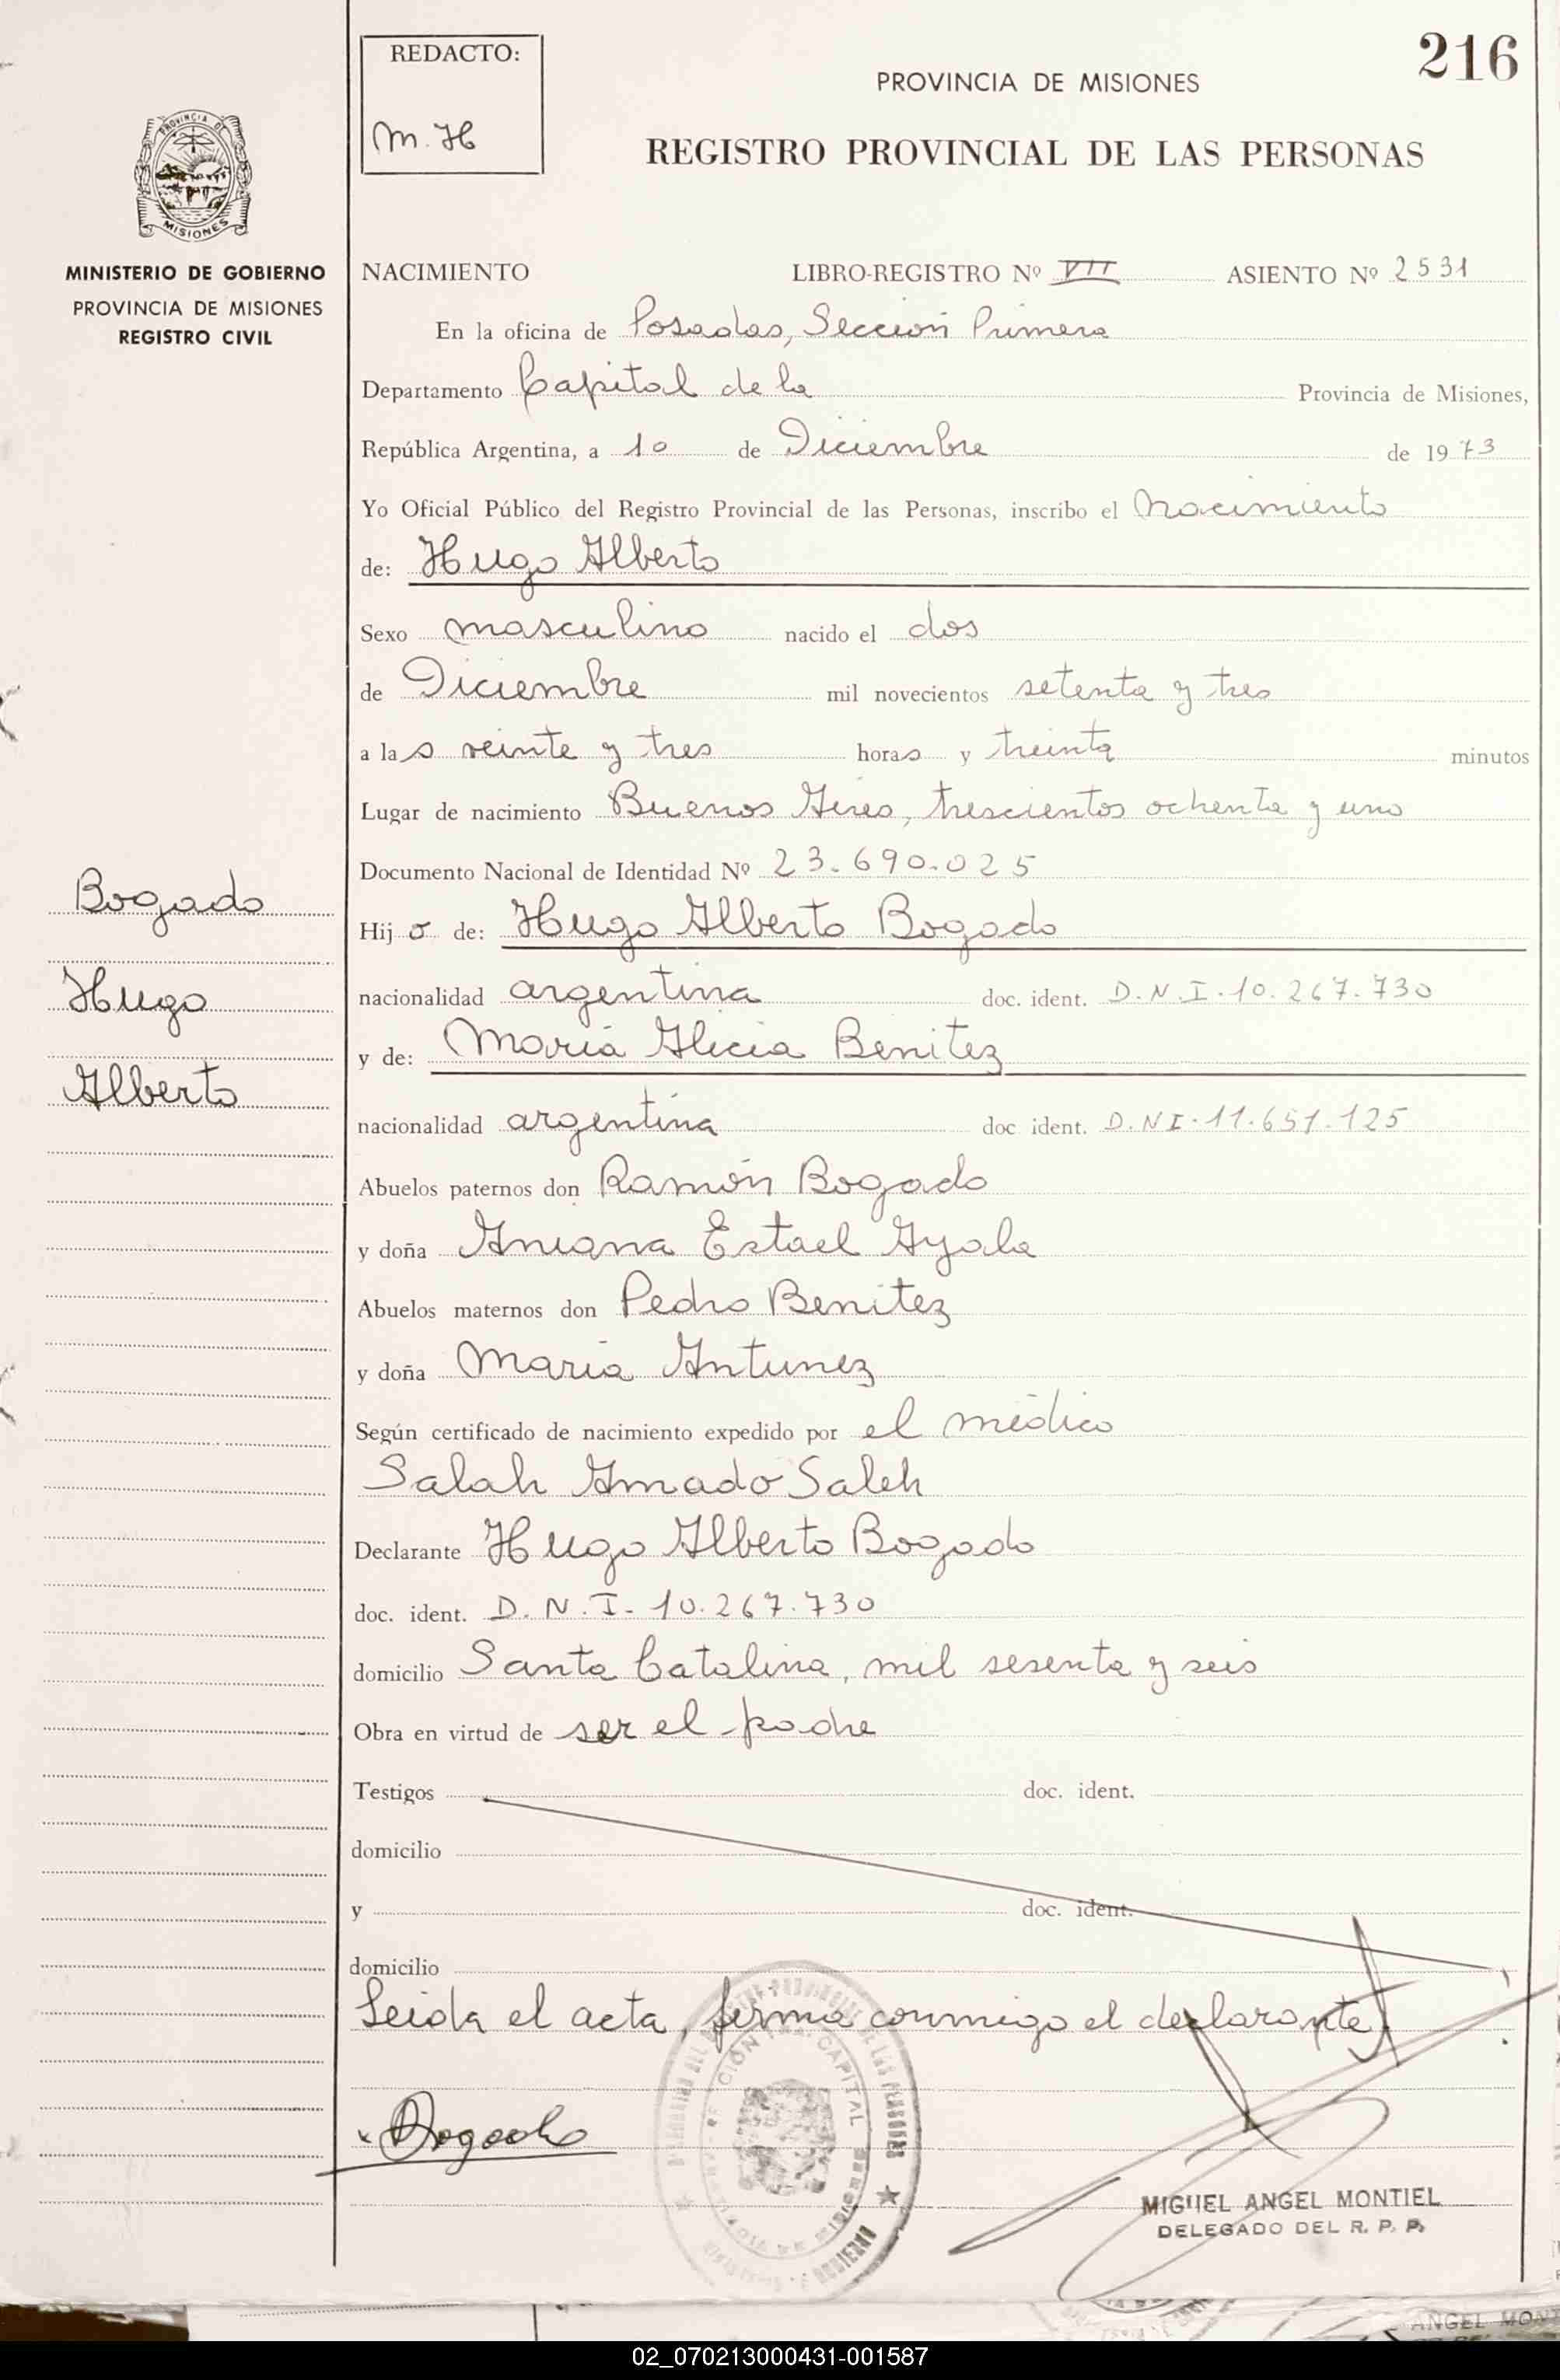 REDACTO:
M. H
216
PROVINCIA DE MISIONES
REGISTRO PROVINCIAL DE LAS PERSONAS
PROVINCIA DE
MISIONES
MINISTERIO DE GOBIERNO
PROVINCIA DE MISIONES
REGISTRO CIVIL
NACIMIENTO LIBRO-REGISTRO Nº VII ASIENTO Nº 2531
En la oficina de Posadas, Sección Primera
Departamento Capital de la Provincia de Misiones,
República Argentina, a 10 de Diciembre de 1973
Yo Oficial Público del Registro Provincial de las Personas, inscribo el Nacimiento
de: Hugo Alberto
Sexo masculino nacido el dos
de Diciembre mil novecientos setenta y tres
a las veinte y tres horas y treinta minutos
Lugar de nacimiento Buenos Aires, trescientos ochenta y uno
Documento Nacional de Identidad Nº 23.690.025
Bogado
Hugo
Alberto
Hijo de: Hugo Alberto Bogado
nacionalidad argentina doc. ident. D.N.I. 10.267.730
y de: María Alicia Benitez
nacionalidad argentina doc. ident. D.N.I. 11.651.125
Abuelos paternos don Ramón Bogado
y doña Aniana Estael Ayala
Abuelos maternos don Pedro Benitez
y doña María Antunez
Según certificado de nacimiento expedido por el médico
Salah Amado Saleh
Declarante Hugo Alberto Bogado
doc. ident. D.N.I. 10.267.730
domicilio Santa Catalina, mil sesenta y seis
Obra en virtud de ser el padre
Testigos doc. ident.
domicilio
y doc. ident.
domicilio
Leida el acta, firma conmigo el declarante.
Bogado
CAPITAL
MIGUEL ANGEL MONTIEL
DELEGADO DEL R. P. P.
ANGEL MONT
02_070213000431-001587